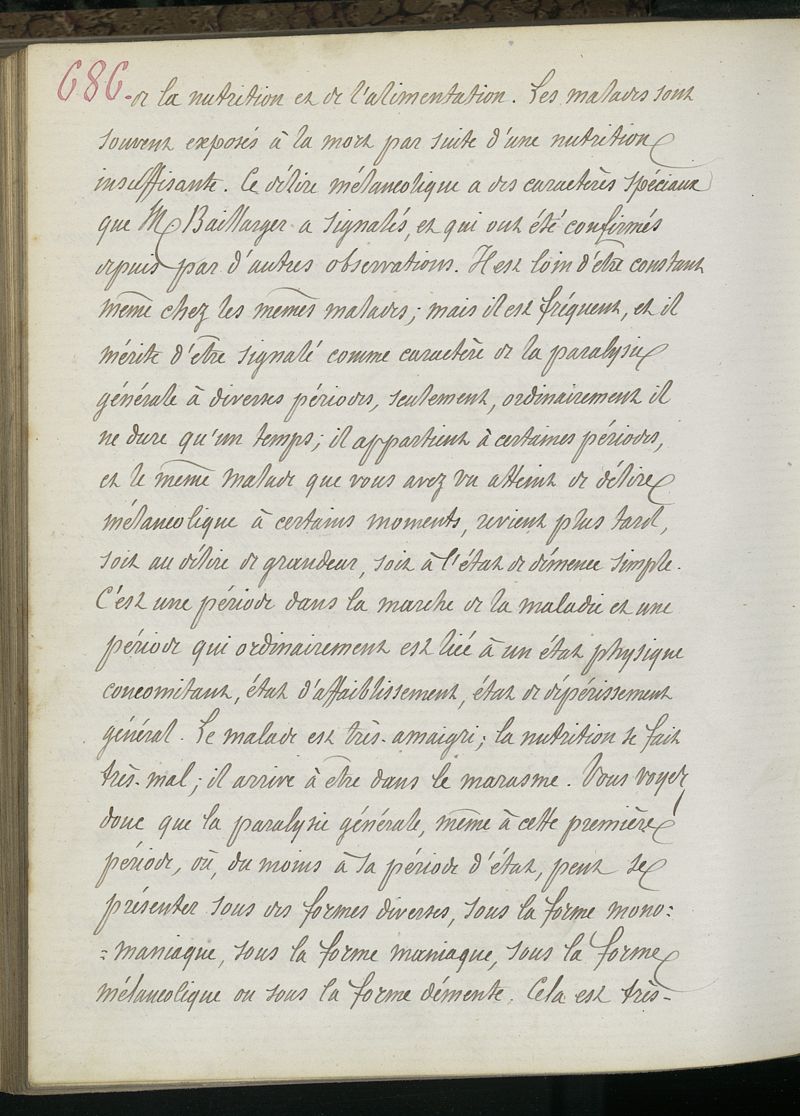 686.
de la nutrition et de l'alimentation. Les malades sont
souvent exposés à la mort par suite d'une nutrition
insuffisante. Ce délire mélancolique a des caractères spéciaux
que M Baillarger a signalés, et qui ont été confirmés
depuis par d'autres observations. Il est loin d'être constant
même chez les mêmes malades; mais il est fréquent, et il
mérite d'être signalé comme caractère de la paralysie
générale à diverses périodes, seulement, ordinairement il
ne dure qu'un temps; il appartient à certaines périodes,
et le même malade que vous avez vu atteint de délire
mélancolique à certains moments, revient plus tard,
soit au délire de grandeur, soit à l'état de démence simple.
C'est une période dans la marche de la maladie et une
période qui ordinairement est liée à un état physique
concomitant, état d'affaiblissement, état de dépérissement
général. Le malade est très-amaigri; la nutrition se fait
très-mal; il arrive à être dans le marasme. Vous voyez
donc que la paralysie générale, même à cette première
période, où, du moins à sa période d'état, peut se
présenter sous des formes diverses, sous la forme mono=
=maniaque, sous la forme maniaque, sous la forme
mélancolique ou sous la forme démente. Cela est très-